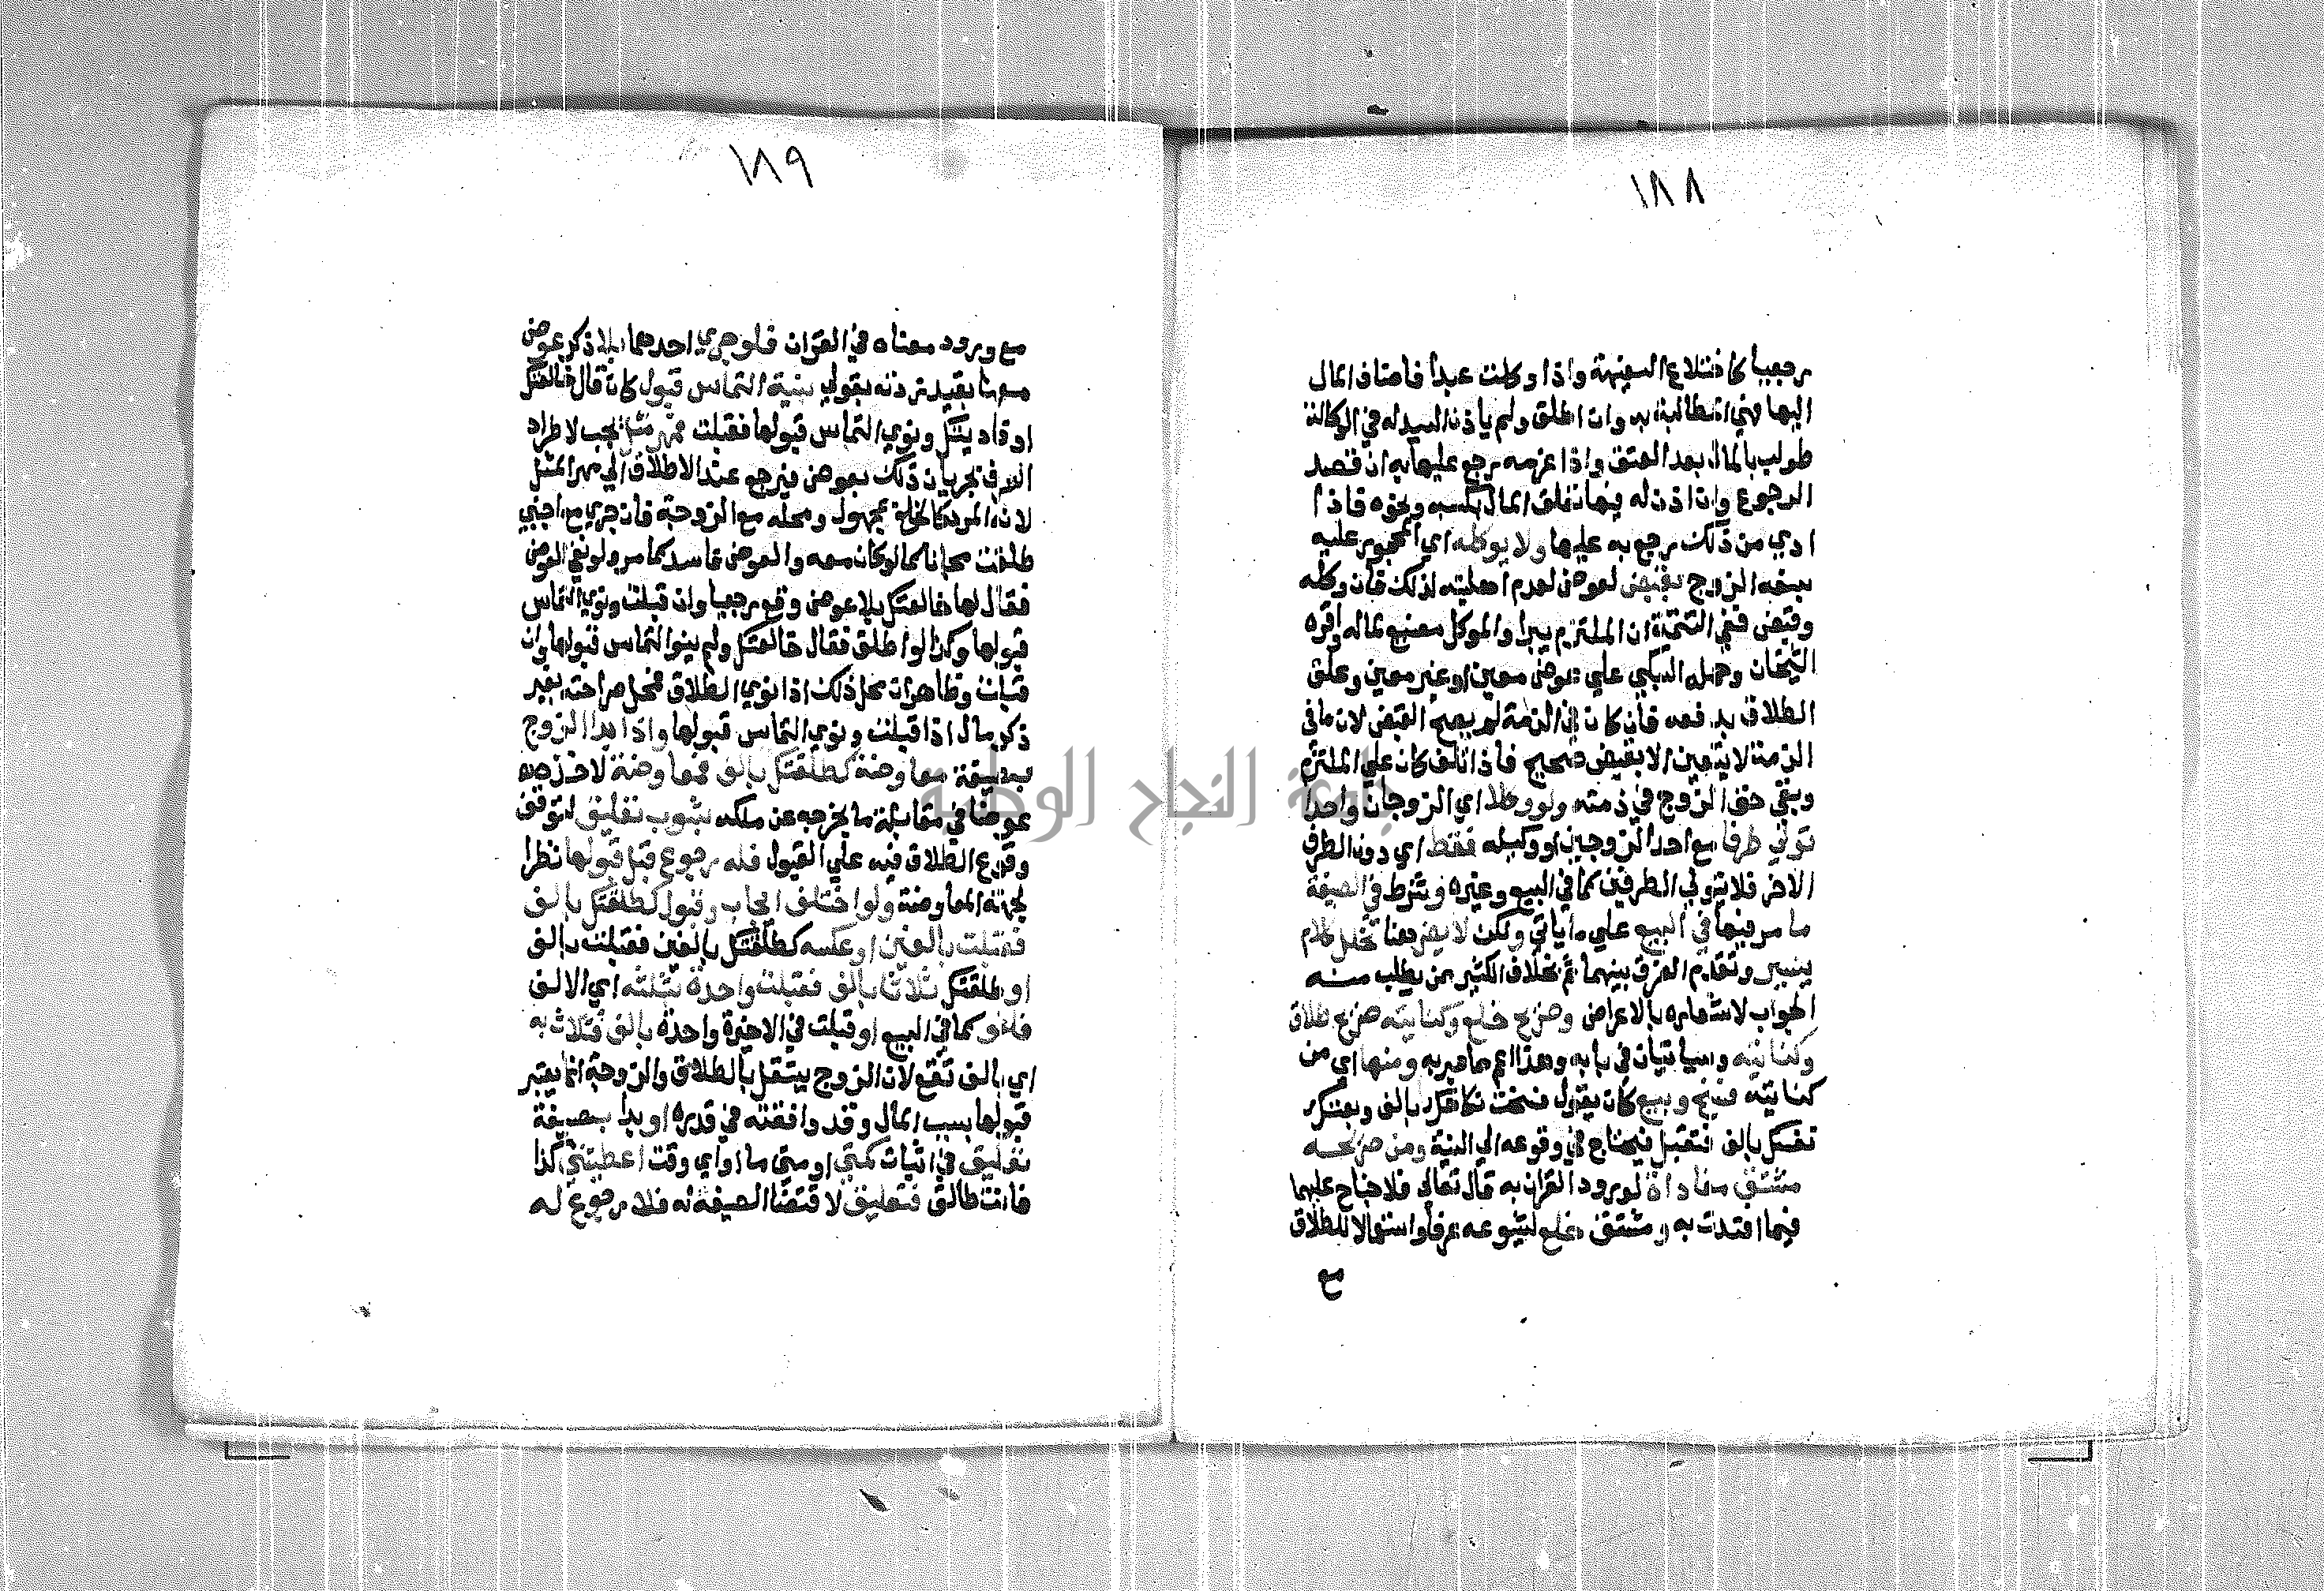 ١٨٨
رجعيا كاختلاع السفيهة واذا وكلت عبدا فاضاف المال
اليها فهي المطالبة به وان اطلق ولم ياذن السيد له في الوكالة
طولب بالمال بعد العتق واذا غرمه رجع عليها به ان قصد
الرجوع وان اذن له فيها تعلق المال بكسبه ونحوه فاذا
ادي من ذلك رجع به عليها ولا يوكله اي المحجور عليه
بسفه الزوج بقبض لعوض لعدم اهليته لذلك فان وكله
وقبض ففي التتمة ان الملتزم يبرا والموكل مضيع لماله واقره
الشيخان وحمله السبكي علي عوض معين او غير معين وعلق
الطلاق بدفعه فان كان في الذمة لم يصح القبض لان ما في
الذمة لا يتعين الا بقبض صحيح فاذا تلف كان علي الملتزم
وبقي حق الزوج في ذمته ولو وكلا اي الزوجان واحدا
تولي طرفا مع احد الزوجين او وكيله فقط اي دون الطرف
الاخر فلا يتولي الطرفين كما في البيع وغيره وشرط في الصيغة
ما مر فيها في البيع علي ما ياتي ولكن لا يضر هنا تخلل كلام
يسير وتقدم الفرق بينهما ثم بخلاف الكثير ممن يطلب منه
الجواب لاشعاره بالاعراض وصريح خلع وكنايته صريح طلاق
وكنايته وسياتيان في بابه وهذا اعم مما عبر به ومنها اي من
كنايته فسخ وبيع كان يقول فسخت نكاحك بالف وبعتك
نفسك بالف فتقبل فيحتاج في وقوعه الي النية ومن صريحه
مشتق مفاداة لورود القران به قال تعالي فلا جناح عليهما
فيما افتدت به ومشتق خلع لشيوعه عرفا واستعمالا للطلاق
مع
١٨٩
مع ورود معناه في القران فلو جري احدهما بلا ذكر عوض
معها بقيد زدته بقولي بنية التماس قبول كان قال خالعتك
او فاديتك ونوي التماس قبولها فقبلت فمهر مثل يجب لاطراد
العرف بجريان ذلك بعوض فيرجع عند الاطلاق الي مهر المثل
لانه المرد كالخلع بمجهول ومحله مع الزوجة فان جري مع اجنبي
طلقت مجانا كما لو كان معه والعوض فاسد كما مر ولو نفي العوض
فقال لها خالعتك بلا عوض وقع رجعيا وان قبلت ونوي التماس
قبولها وكذا لو اطلق فقال خالعتك ولم ينو التماس قبولها وان
قبلت وظاهر ان محل ذلك اذا نوي الطلاق فمحل صراحته بغير
ذكر مال اذا قبلت ونوي التماس قبولها واذا بدا الزوج
بصيغة معاوضة كطلقتك بالف فمعاوضة لاخذه
عوضا في مقابلة ما يخرجه عن ملكه بشوب تعليق لتوقف
وقوع الطلاق فيه علي القبول فله رجوع قبل قبولها نظرا
لجهة المعاوضة ولو اختلف ايجاب وقبول كطلقتك بالف
فقبلت بالفين او عكسه كطلقتك بالفين فقبلت بالف
او طلقتك ثلاثا بالف فقبلت واحدة بثلثه اي الالف
فلغو كما في البيع او قبلت في الاخيرة واحدة بالف فثلاث به
اي بالف تقع لان الزوج يستقل بالطلاق والزوجة انما يعتبر
قبولها بسبب المال وقد وافقته في قدره او بدا بصيغة
تعليق في اثبات كمتي او متي ما او اي وقت اعطيتني كذا
فانت طالق فتعليق لاقتضا الصيغة له فلا رجوع له
جامعة النجاح الوطنية